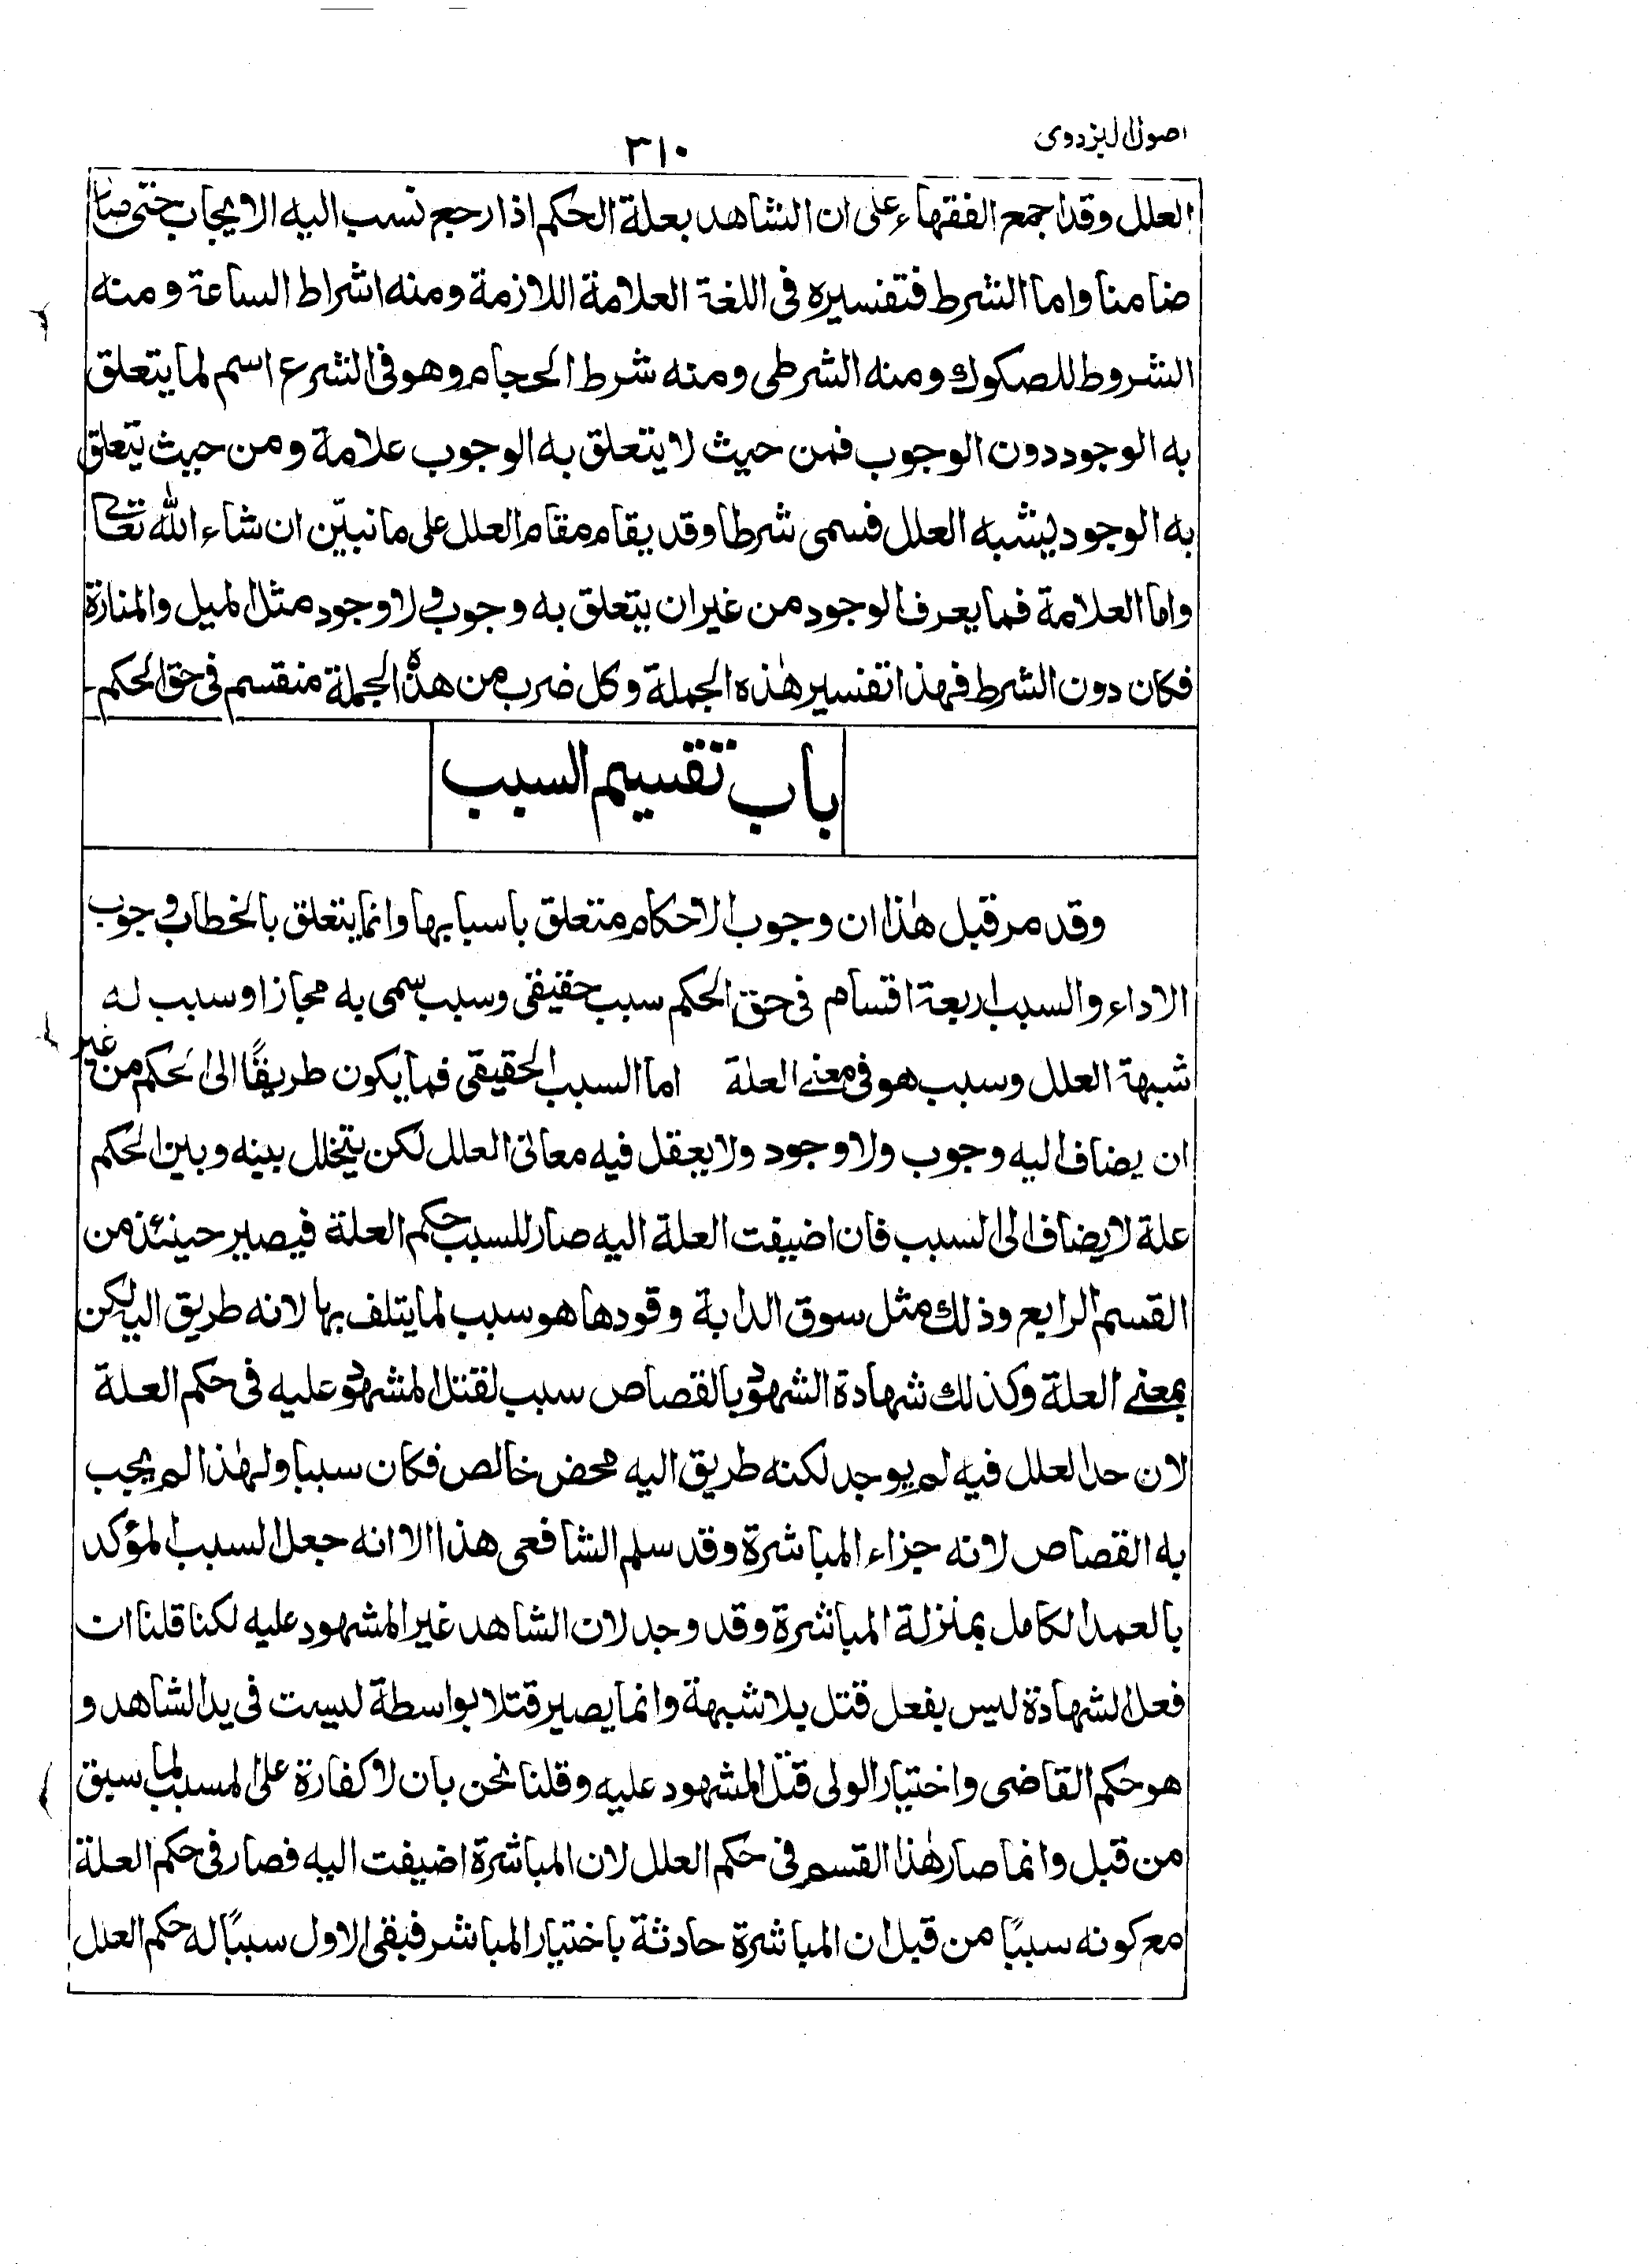 اصول البزدوى
٣١٠
العلل وقد اجمع الفقهاء على ان الشاهد بعلة الحكم اذا رجع نسب اليه الايجاب حتى صار
ضامنا واما الشرط فتفسيره فى اللغة العلامة اللازمة ومنه اشراط الساعة ومنه
الشروط للصكوك ومنه الشرطى ومنه شرط الحجام وهو فى الشرع اسم لما يتعلق
به الوجود دون الوجوب فمن حيث لا يتعلق به الوجوب علامة ومن حيث يتعلق
به الوجود يشبه العلل فسمى شرطا وقد يقام مقام العلل على ما نبيّن ان شاء الله تعالى
واما العلامة فما يعرف الوجود من غير ان يتعلق به وجوب ولا وجود مثل الميل والمنارة
فكان دون الشرط فهذا تفسير هٰذه الجملة وكل ضرب من هذه الجملة منقسم فى حق الحكم -
باب تقسيم السبب
وقد مر قبل هٰذا ان وجوب الاحكام متعلق باسبابها وانما يتعلق بالخطاب وجوب
الاداء والسبب اربعة اقسام فى حق الحكم سبب حقيقى وسبب سمى به مجازا وسبب له
شبهة العلل وسبب هو فى معنى العلة اما السبب الحقيقى فما يكون طريقًا الى الحكم من غير
ان يضاف اليه وجوب ولا وجود ولا يعقل فيه معانى العلل لكن يتخلل بينه وبين الحكم
علة لا يضاف الى السبب فان اضيفت العلة اليه صار للسبب حكم العلة فيصير حينئذ من
القسم الرابع وذلك مثل سوق الدابة وقودها هو سبب لما يتلف بها لانه طريق اليه لكن
بمعنى العلة وكذلك شهادة الشهود بالقصاص سبب لقتل المشهود عليه فى حكم العلة
لان حد العلل فيه لم يوجد لكنه طريق اليه محض خالص فكان سببا ولهٰذا لم يجب
به القصاص لانه جزاء المباشرة وقد سلم الشافعى هذا الا انه جعل السبب المؤكد
بالعمد الكامل بمنزلة المباشرة وقد وجد لان الشاهد غير المشهود عليه لكنا قلنا ان
فعل الشهادة ليس بفعل قتل بلا شبهة وانما يصير قتلا بواسطة ليست فى يد الشاهد و
هو حكم القاضى واختيار الولى قتل المشهود عليه وقلنا نحن بان لا كفارة على المسبب لما سبق
من قبل وانما صار هٰذا القسم فى حكم العلل لان المباشرة اضيفت اليه فصار فى حكم العلة
مع كونه سببًا من قبل ان المباشرة حادثة باختيار المباشر فبقى الاول سببًا له حكم العلل